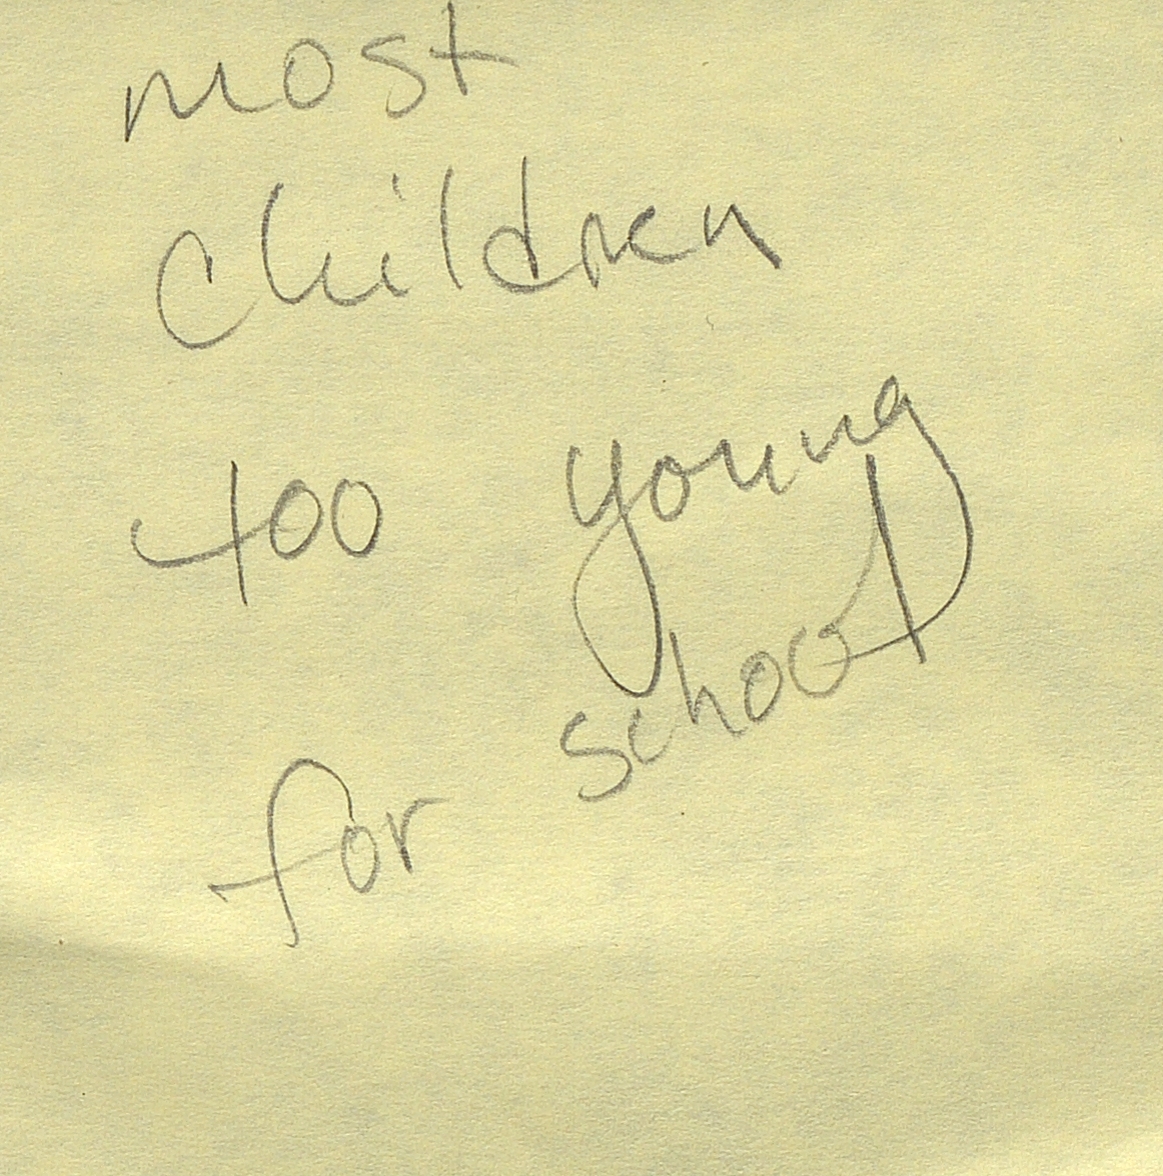 most
children
too young
for school